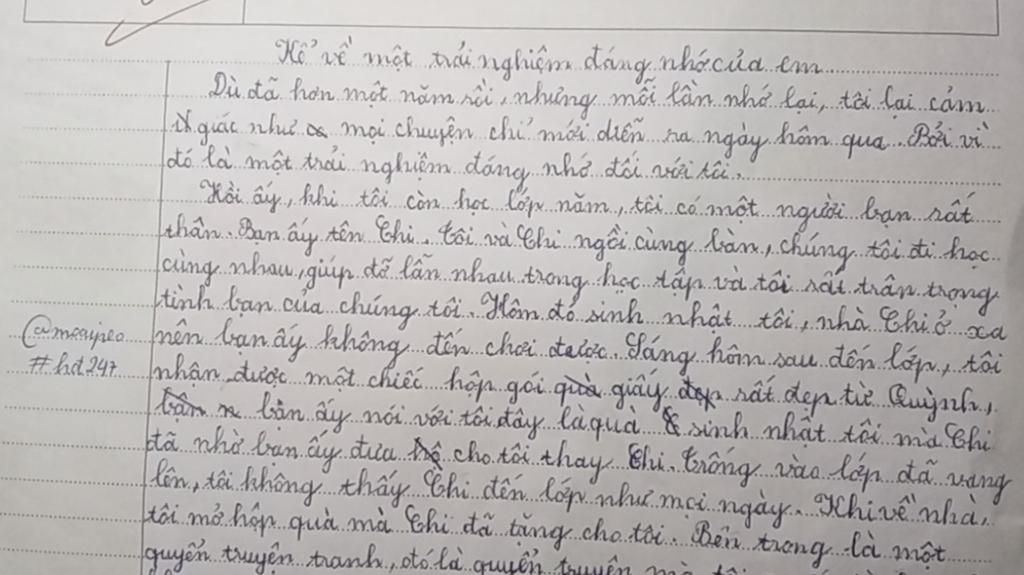 Kể về một trải nghiệm đáng nhớ của em
Dù đã hơn một năm rồi, nhưng mỗi lần nhớ lại, tôi lại cảm
giác như mọi chuyện chỉ mới diễn ra ngày hôm qua. Bởi vì
đó là một trải nghiệm đáng nhớ đối với tôi.
Hồi ấy, khi tôi còn học lớp năm, tôi có một người bạn rất
thân. Bạn ấy tên Chi. Tôi và Chi ngồi cùng bàn, chúng tôi đi học
cùng nhau, giúp đỡ lẫn nhau trong học tập và tôi rất trân trọng
tình bạn của chúng tôi. Hôm đó sinh nhật tôi, nhà Chi ở xa
nên bạn ấy không đến chơi được. Sáng hôm sau đến lớp, tôi
@mcaypea
#hd247
nhận được một chiếc hộp gói quà giấy đẹp rất đẹp từ Quỳnh,
bạn ấy nói với tôi đây là quà sinh nhật tôi mà Chi
đã nhờ bạn ấy đưa cho tôi thay Chi. Trống vào lớp đã vang
lên, tôi không thấy Chi đến lớp như mọi ngày. Khi về nhà,
tôi mở hộp quà mà Chi đã tặng cho tôi. Bên trong là một
quyển truyện tranh, đó là quyển truyện mà tôi